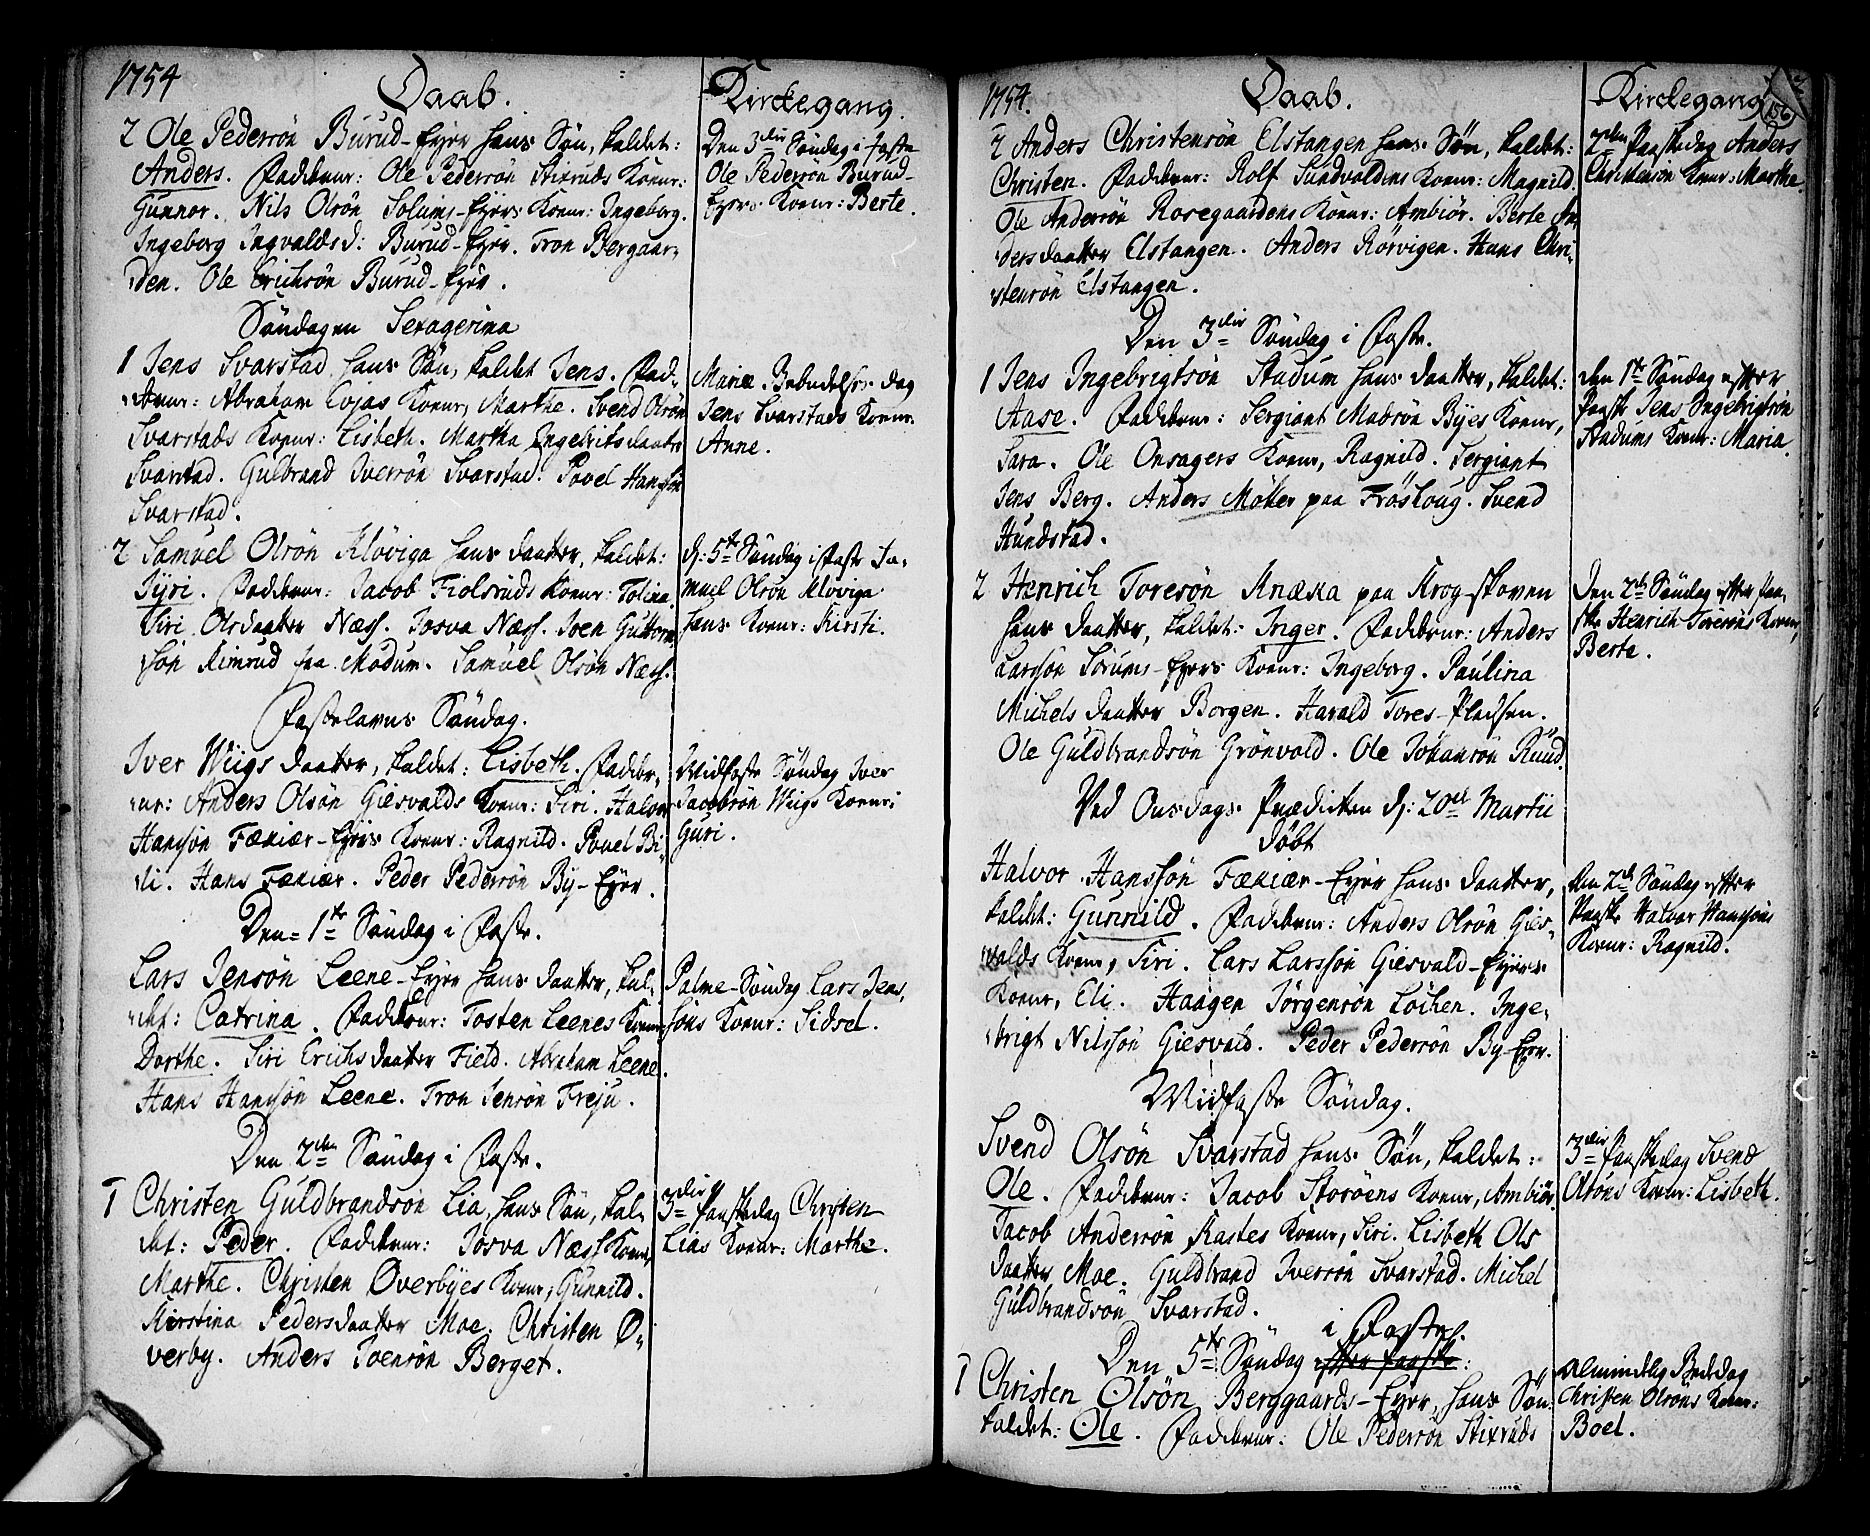 1754
Daab.
Kirckegang.
2 Ole Pedersön Burud-Eyer hans Sön, kaldet:
Anders. Fadderne: Ole Pedersön Stixruds Kone:
Gunnor. Nils Olsön Solums-Eyers Kone: Ingeborg.
Ingeborg Ingvaldsd: Burud-Eyer. Tron Bergaar-
den. Ole Erichsön Burud-Eyer.
Den 3die Söndag i Faste
Ole Pedersön Burud-
Eyers Kone: Berte.
Söndagen Sexagesima
1 Jens Svarstad hans Sön, kaldet Jens. Fad-
derne: Abraham Kone, Marthe. Svend Olsön
Svarstads Kone: Lisbeth. Martha Ingebritsdaatter
Svarstad. Gulbrand Iversön Svarstad. Povel Hanssön
Svarstad.
Mariæ Bebudelses dag
Jens Svarstads Kone:
Anne.
2 Samuel Olsön Klöviga hans Daatter, kaldet:
Syri. Fadderne: Jacob Fiolsruds Kone: Tolina.
Siri Olsdaatter Næss. Josva Næss. Joen Guttorm-
sön Rimrud paa Modum. Samuel Olsön Næss.
d: 5te Söndag i Faste Sa-
muel Olsön Klöviga
hans Kone: Kirsti.
Fastelavns Söndag.
Iver Wiigs Daatter, kaldet: Lisbeth. Fadder-
ne: Anders Olsön Giesvalds Kone: Siri. Halvor
Hanssön Fækiær-Eyers Kone: Ragnild. Povel Bi-
li. Hans Fækiær. Peder Pedersön By-Eyer.
Midfaste Söndag Iver
Jacobsön Wiigs Kone:
Guri.
Den 1te Söndag i Faste.
Lars Jensön Leene-Eyer hans Daatter, kal-
det: Catrina. Fadderne: Tosten Leenes Kone
Dorthe. Siri Erichsdaatter Field. Abraham Leene.
Hans Hanssön Leene. Tron Jensön Freju.
Palme-Söndag Lars Jens-
söns Kone: Sidsel.
Den 2den Söndag i Faste.
1 Christen Guldbrandsön Lia, hans Sön, kal-
det: Peder. Fadderne: Josva Næss Kone,
Marthe. Christen Overbyes Kone, Gunnild.
Kirstina Pedersdaatter Moe. Christen O-
verby. Anders Joensön Berget.
3die Paaskedag Christen
Lias Kone: Marthe.
1754.
Daab.
Kirckegang
156
2 Anders Christensön Elstangen hans Sön, kaldet:
Christen. Fadderne: Rolf Sundvoldens Kone: Magnild.
Ole Andersön Rosegaardens Kone: Ambiör. Berte An-
dersdaatter Elstangen. Anders Rörvigen. Hans Chri-
stensön Elstangen.
2den Paaskedag Anders
Christensön Kone: Marthe
Den 3die Söndag i Faste.
1 Jens Ingebrigtsön Stadum hans Daatter, kaldet:
Aase. Fadderne: Sergiant Madsön Byes Kone,
Sara. Ole Onsagers Kone, Ragnild. Sergiant
Jens Berg. Anders Möller paa Frösloug. Svend
Hundstad.
Den 1te Söndag efter
Paaske Jens Ingebrigtsön
Stadums Kone: Maria.
2 Henrich Toresön Knæka paa Krog-skoven
hans Daatter, kaldet: Inger. Fadderne: Anders
Larssön Sörums-Eyers Kone: Ingeborg. Paulina
Michels Daatter Borgen. Harald Tores-Pladsen.
Ole Guldbrandsön Grönvold. Ole Johansön Ruud.
Den 2den Söndag efter Paa-
ske Henrich Toresöns Kone,
Berte.
Ved Onsdags Prædicken d: 20de Martii
Döbt
Halvor Hanssön Fækiær-Eyer hans Daatter,
kaldet: Gunnild. Fadderne: Anders Olsön Gies-
valds Kone, Siri. Lars Larssön Giesvald-Eyers
Kone, Eli. Haagen Jörgensön Löchen. Inge-
brigt Nilssön Giesvald. Peder Pedersön By-Eyer.
Den 2den Söndag efter
Paaske Halvor Hanssöns
Kone: Ragnild.
Midfaste Söndag.
Svend Olsön Svarstad hans Sön, kaldet:
Ole. Fadderne: Jacob Storöens Kone, Ambiör.
Jacob Andersön Kastes Kone, Siri. Lisbeth Ols
Daatter Moe. Guldbrand Iversön Svarstad. Michel
Guldbrandsön Svarstad.
3die Paaskedag Svend
Olsöns Kone: Lisbeth.
i Faste.
Den 5te Söndag efter Paaske:
1 Christen Olsön Berggaards-Eyer, hans Sön
kaldet: Ole. Fadderne: Ole Pedersön Stixruds
Almindelig Bededag
Christen Olsöns Kone:
Boel.